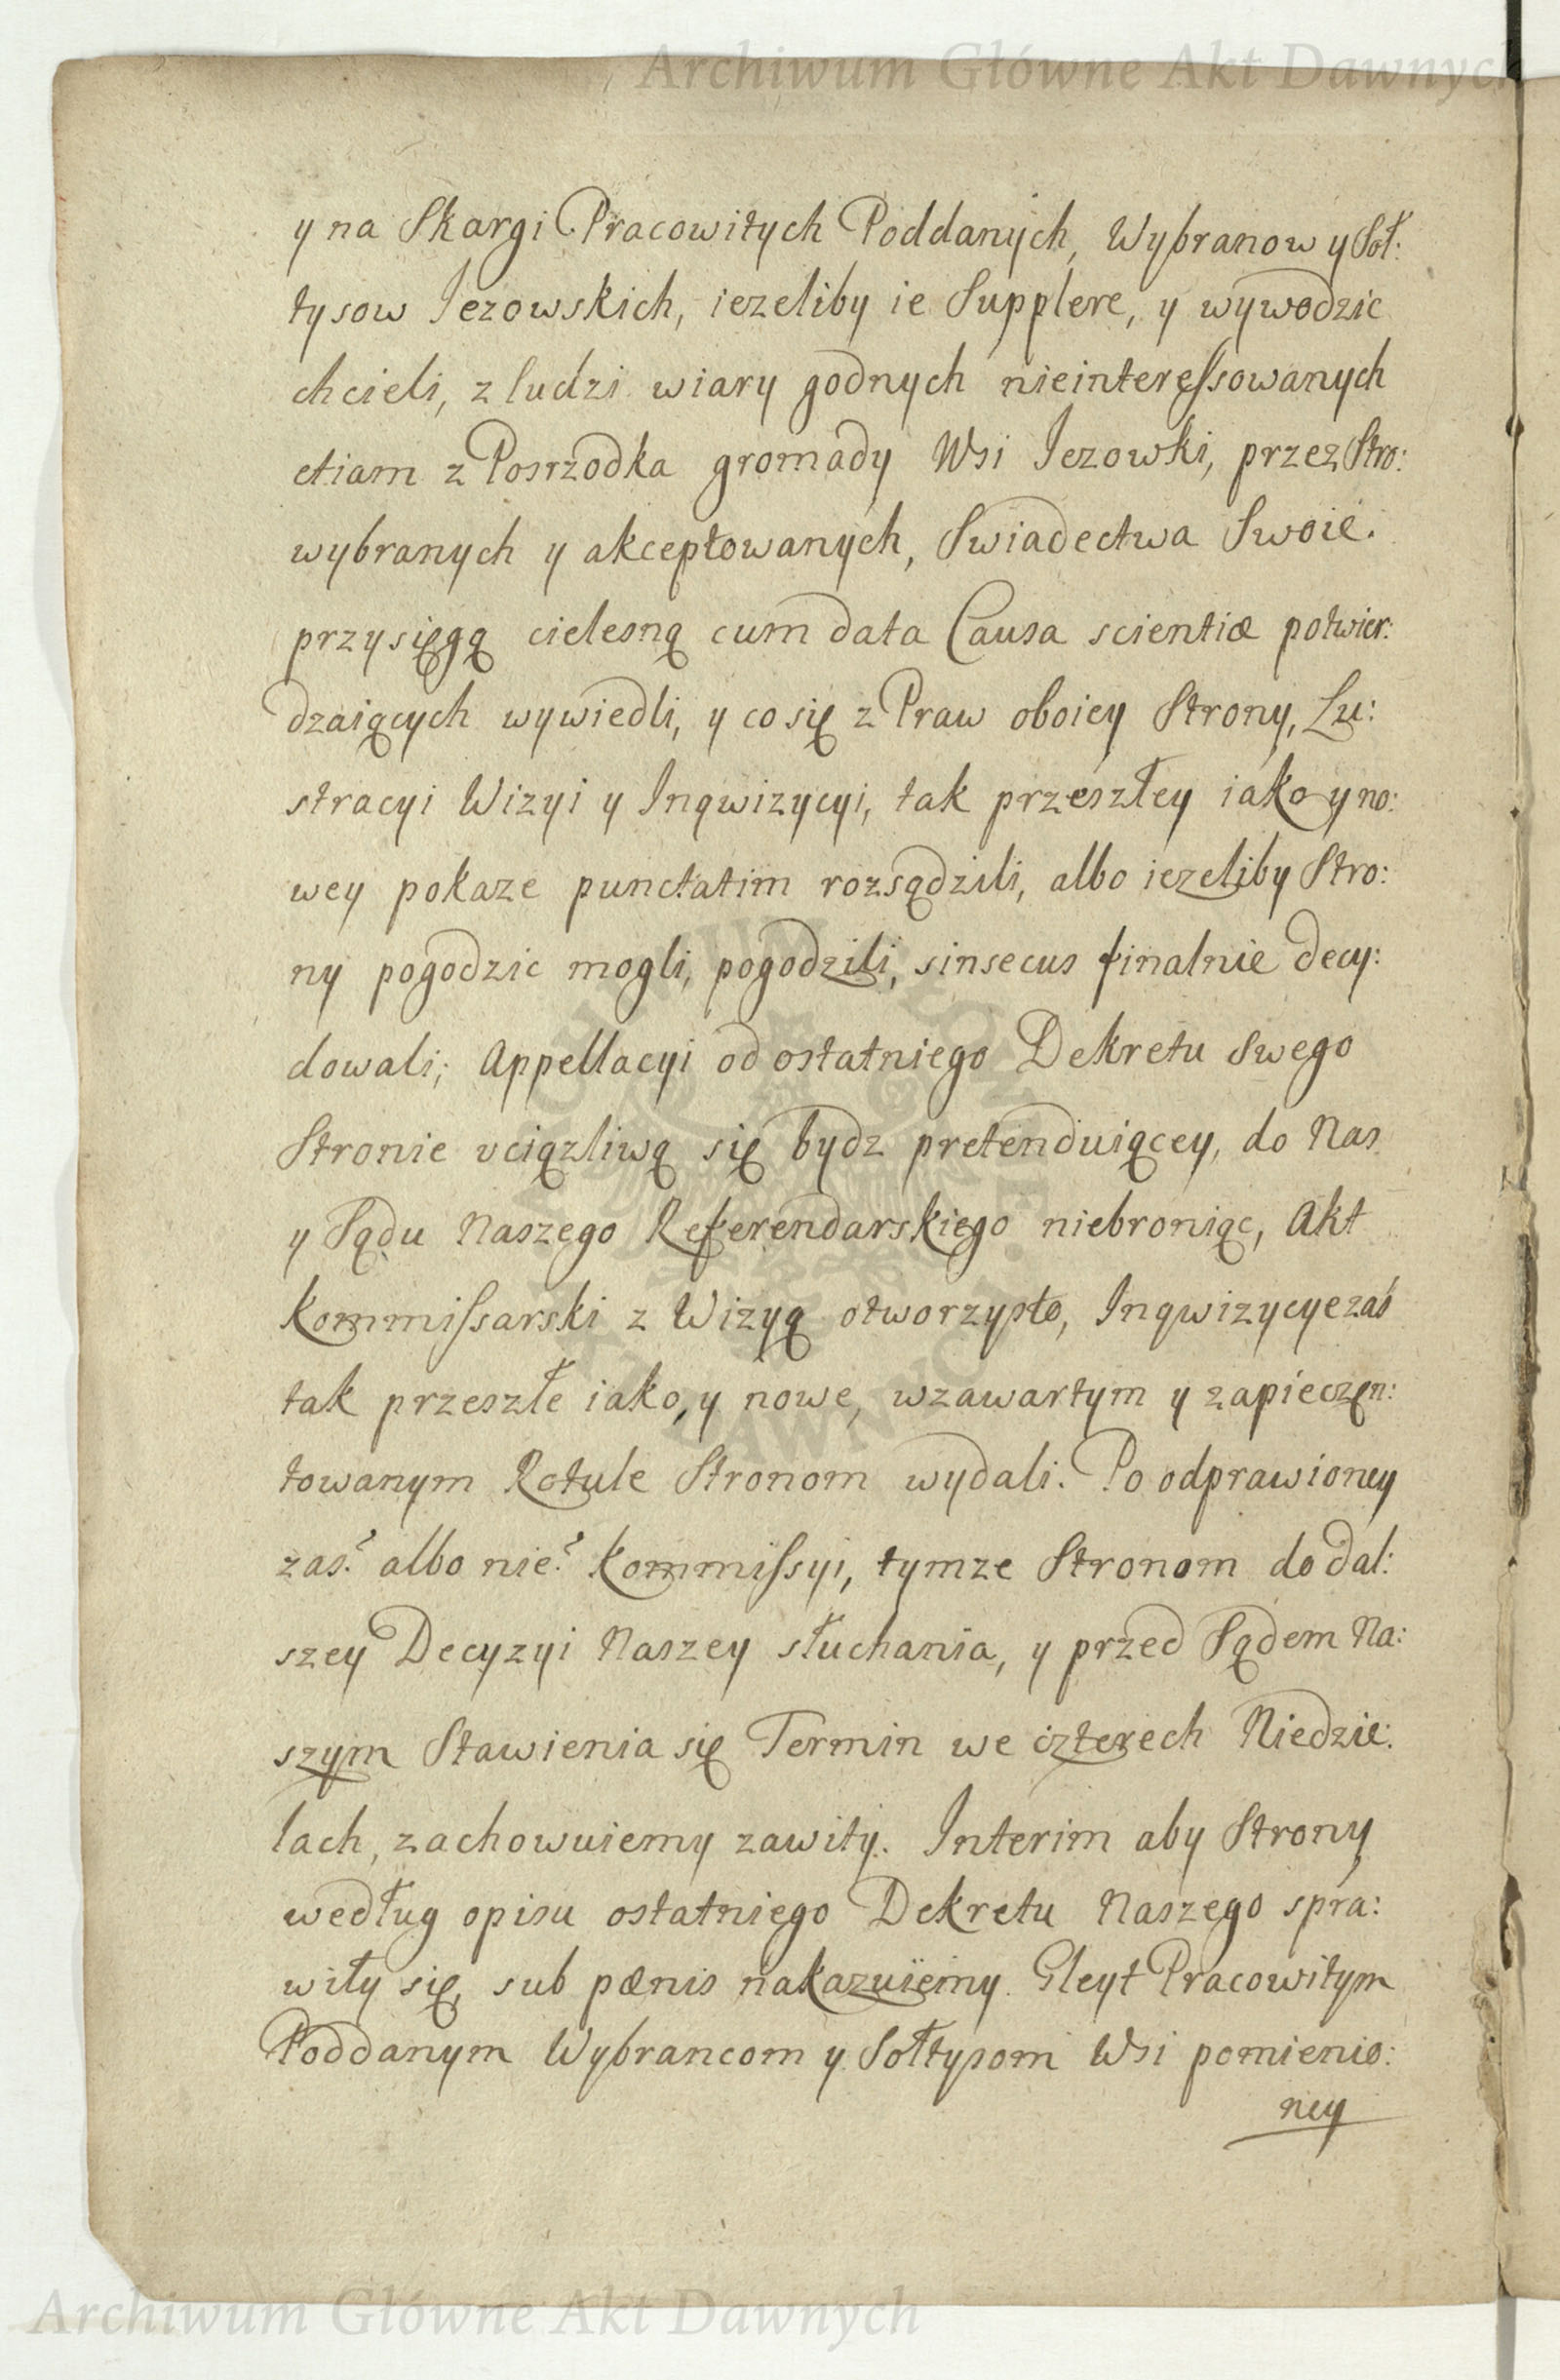 Archiwum Główne Akt Dawnych
y na Skargi Pracowitych Poddanych, Wybranow y Soł:
tysow Jezowskich, iezeliby ie Supplere, y wywodzic
chcieli, z ludzi wiary godnych nieinteressowanych
etiam z Posrzodka gromady Wsi Jezowki, przez Stro:
wybranych y akceptowanych, Swiadectwa Swoie.
przysięgą cielesną cum data Causa scientiæ potwier:
dzaiących wywiedli, y co się z Praw oboiey Strony, Lu:
stracyi Wizyi y Inqwizycyi, tak przeszłey iako y no:
wey pokaze punctatim rozsądzili, albo iezeliby Stro:
ny pogodzic mogli, pogodzili, sinsecus finalnie decy:
dowali; Appellacyi od ostatniego Dekretu Swego
Stronie vciązliwą się bydz pretenduiącey, do Nas
y Sądu Naszego Referendarskiego niebroniąc, Akt
Kommissarski z Wizyą otworzysto, Inqwizycye zaś
tak przeszłe iako, y nowe, wzawartym y zapieczęn:
towanym Rotule Stronom wydali. Po odprawioney
zaś albo nie Kommissyi, tymze Stronom do dal:
szey Decyzyi Naszey słuchania, y przed Sądem Na:
szym Stawienia się Termin we czterech Niedzie:
lach, zachowuiemy zawity. Interim aby Strony
według opisu ostatniego Dekretu Naszego spra:
wiły się, sub pænis nakazuiemy. Gleyt Pracowitym
Poddanym Wybrancom y Sołtysom Wsi pomienio:
ney
Archiwum Główne Akt Dawnych